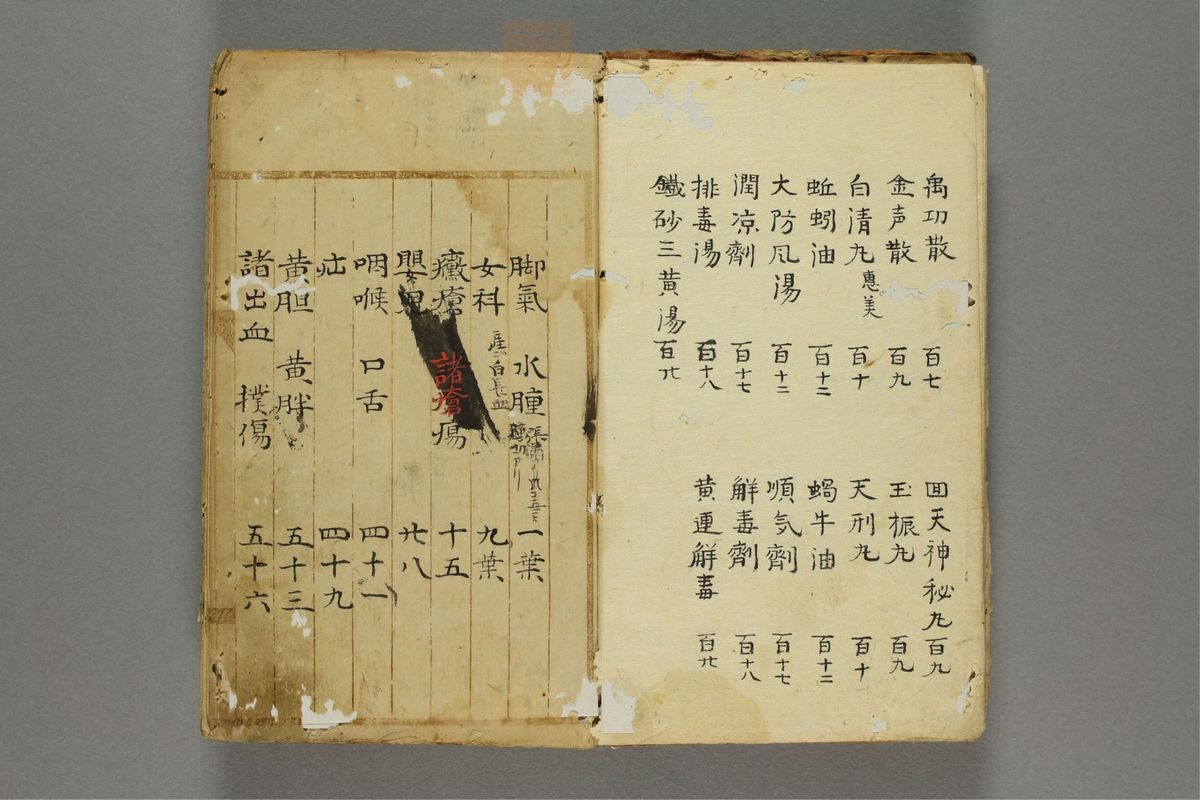 禹功散 百七
金声散 百九
白清丸 惠美 百十
蚯蚓油 百十二
大防风湯 百十二
潤凉劑 百十七
排毒湯 百十八
鐵砂三黄湯 百廿
回天神秘丸 百九
玉振丸 百九
天刑丸 百十
蝸牛油 百十二
順気劑 百十七
解毒劑 百十八
黄連解毒 百廿
脚氣 水腫 一葉
女科 九葉
癥瘡 諸瘡瘍 十五
嬰児 廿八
咽喉 口舌 四十一
疝 四十九
黄胆 黄胖 五十三
諸出血 撲傷 五十六